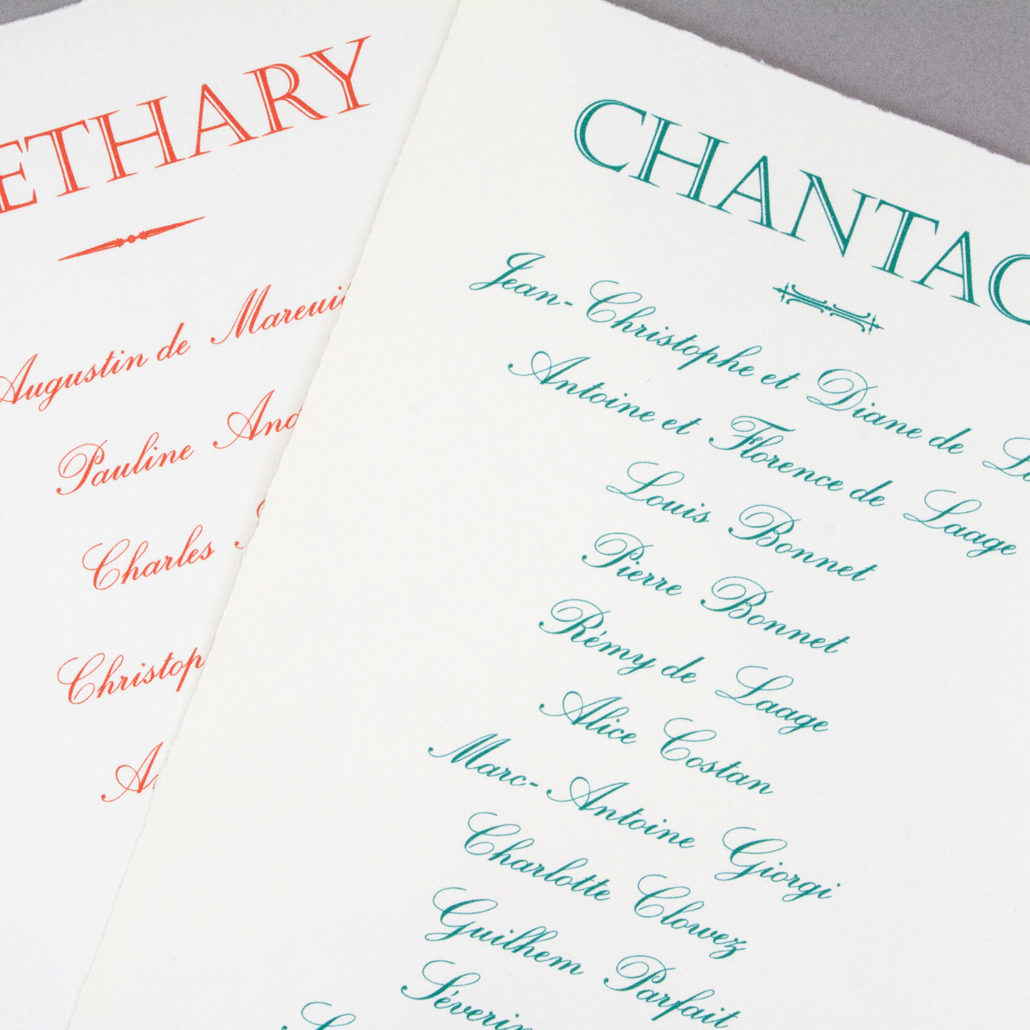 ETHARY
Augustin de Mareuil
Pauline
Charles
A
CHANTAC
Jean-Christophe et Diane de
Antoine et Florence de Laage
Louis Bonnet
Pierre Bonnet
Rémy de Laage
Alice Costan
Marc-Antoine Giorgi
Charlotte Clowez
Guilhem Parfait